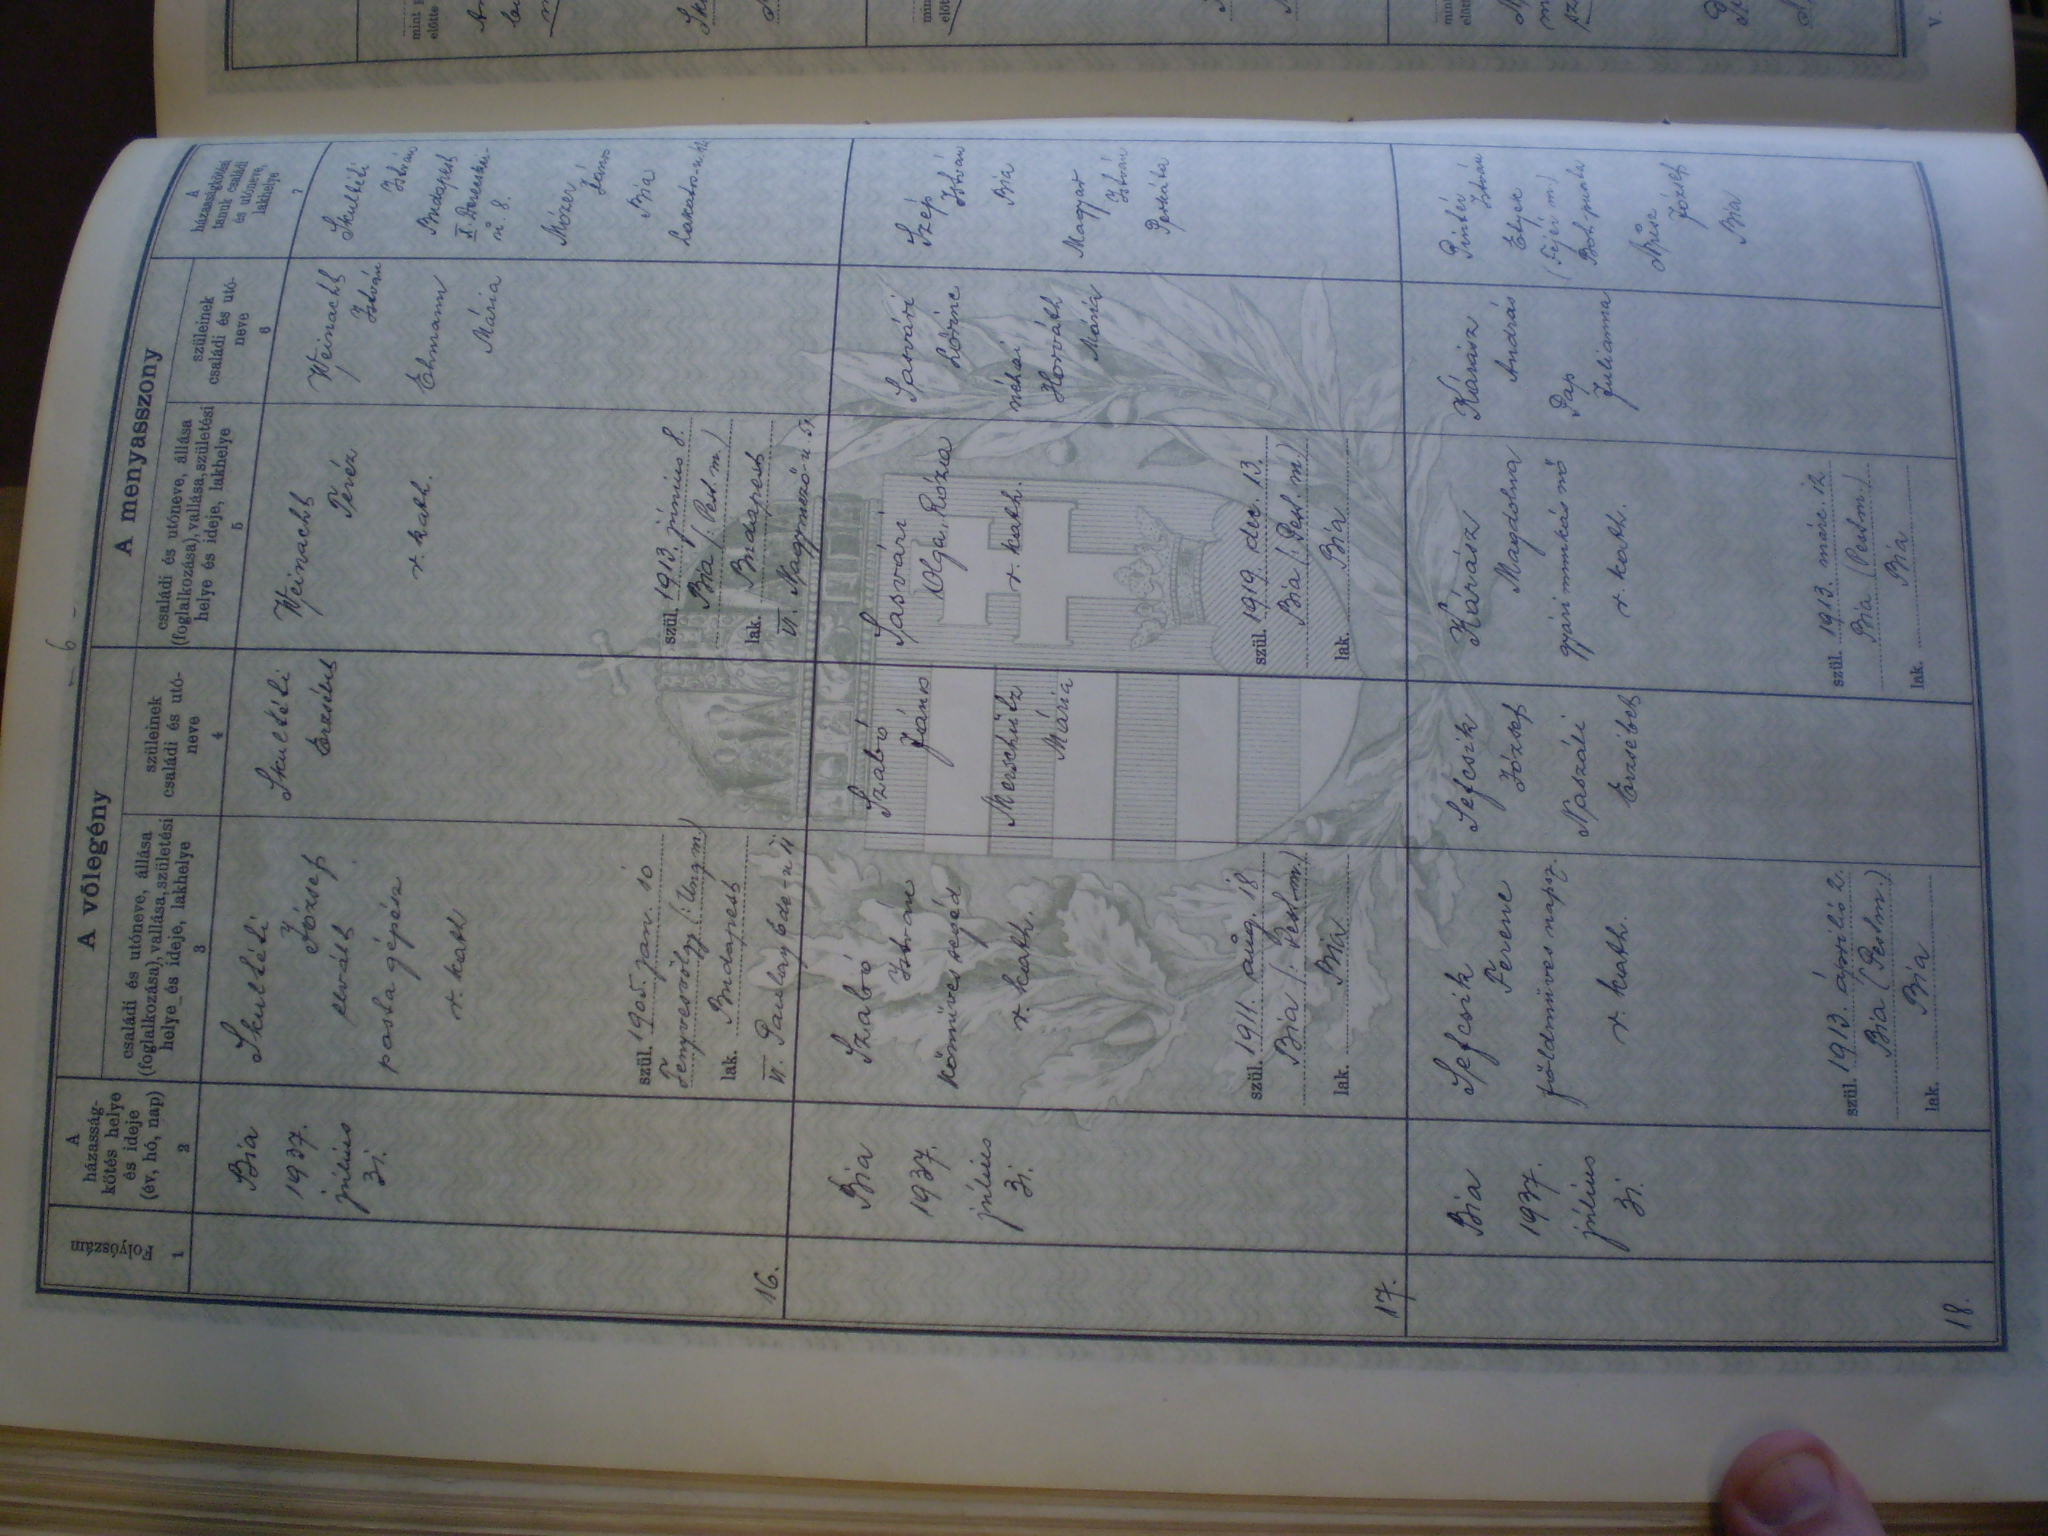 - 6 -
A vőlegény
A menyasszony
Folyószám
1
A
házasság-
kötés helye
és ideje
(év, hó, nap)
2
családi és utóneve, állása
(foglalkozása), vallása, születési
helye és ideje, lakhelye
3
szüleinek
családi és utó-
neve
4
családi és utóneve, állása
(foglalkozása), vallása, születési
helye és ideje, lakhelye
5
szüleinek
családi és utó-
neve
6
A
házasságkötési
tanuk családi
és utóneve,
lakhelye
7
16.
Bia
1937.
július
31.
Skultéti
József
elvált
posta gépész
r. kath
szül. 1905. jan. 10
Fenyvesvölgy /: Ung m /
lak. Budapest
VI. Paulay Ede-u 11
Skultéti
Erzsébet
Weinacht
Teréz
r. kath.
szül. 1913. június 8.
Bia /: Pest m /
lak. Budapest
VI. Nagymező-u 51.
Weinacht
István
Ehmann
Mária
Skultéti
István
Budapest
X.
u. 8.
Mózer
János
Bia
17.
Bia
1937.
július
31.
Szabó
István
kőmüves segéd
r. kath.
szül. 1911. aug. 18
Bia /: Pest m /
lak. Bia
Szabó
János
Merschütz
Mária
Sasvári
Olga, Rózia
r. kath.
szül. 1919. dec. 13.
Bia /: Pest. m /
lak. Bia
Sasvári
Lőrinc
néhai
Horváth
Mária
Szép
István
Bia
Magyar
István
Perkáta
18.
Bia
1937.
július
31.
Sefcsik
Ferenc
földmüves napsz.
r. kath.
szül. 1913. április 2.
Bia (Pestm.)
lak. Bia
Sefcsik
József
Naszáli
Erzsébet
Kárász
Magdolna
gyári munkás nő
r. kath.
szül. 1913. márc. 12
Bia (Pestm.)
lak. Bia
Kárász
András
Pap
Julianna
Pintér
István
Etyek
(Fejér m)
Bot-puszta
József
Bia
mint
V.